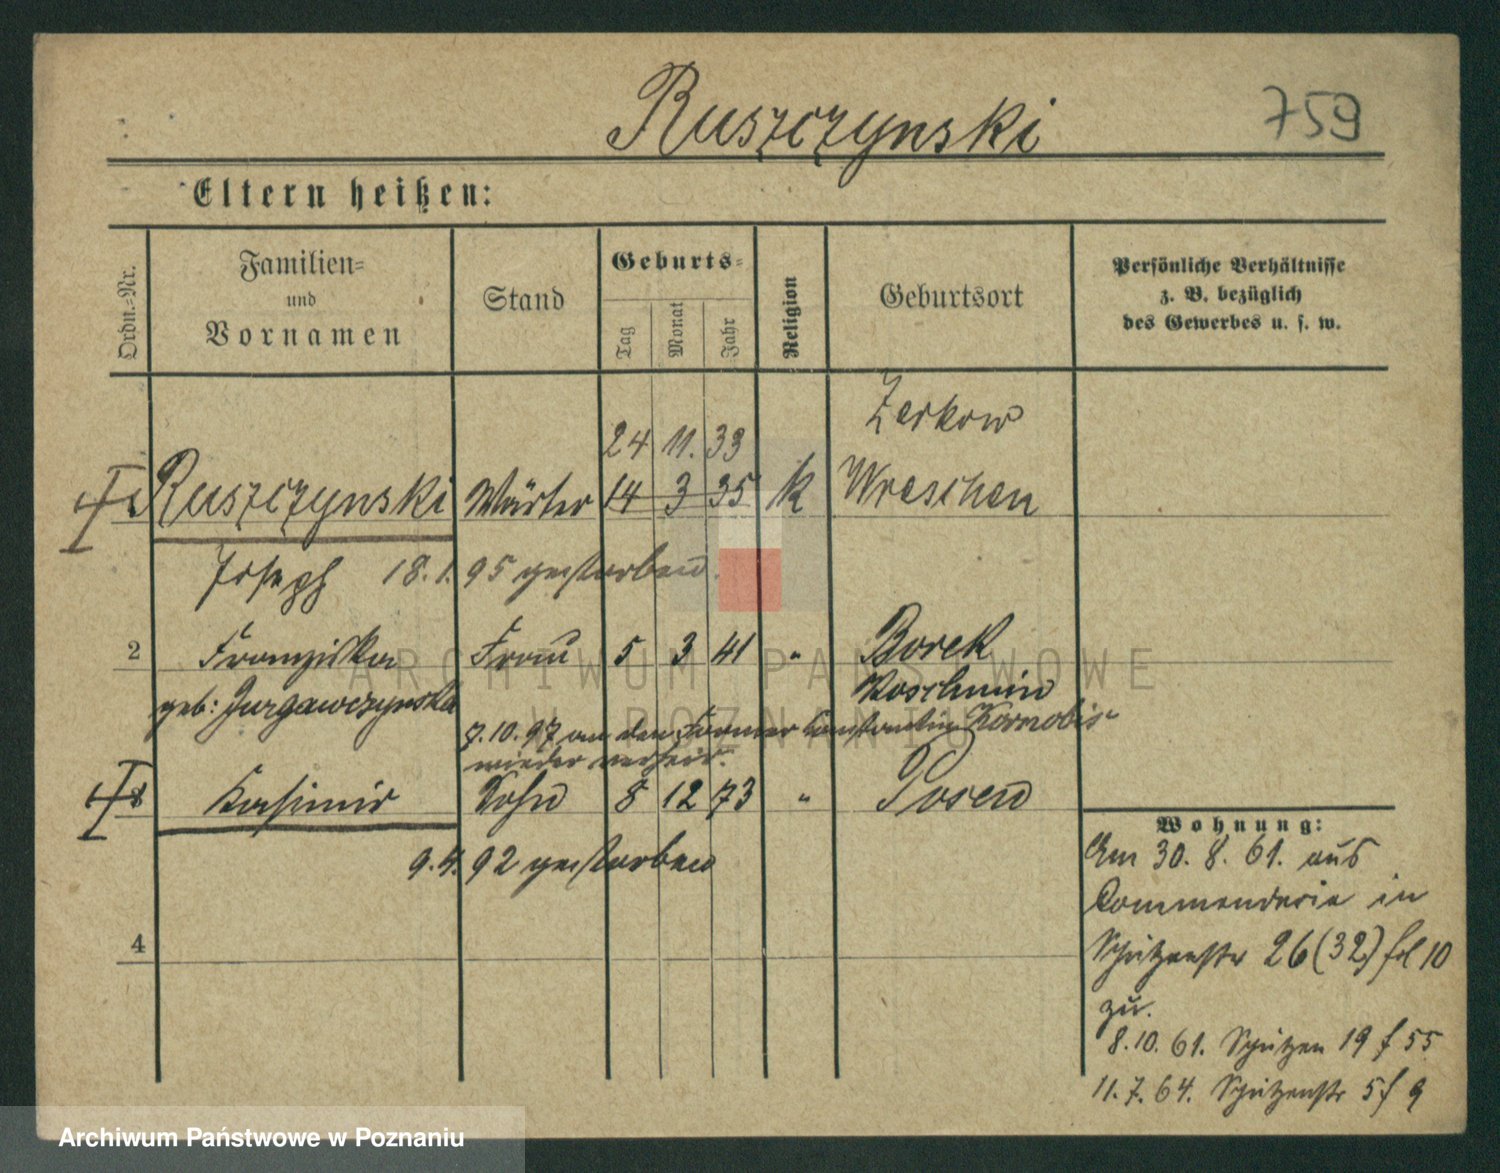 Ruszczynski
759
Eltern heißen:
Ordn.-Nr.
Familien- und Vornamen
Stand
Geburts-
Tag
Monat
Jahr
Religion
Geburtsort
Persönliche Verhältnisse
z. B. bezüglich
des Gewerbes u. s. w.
Zerkow
24 11. 33
Ruszczynski Wärter 14 3 35 k Wreschen
Joseph 18. 1. 95 gestorben.
2 Franziska Frau 5 3 41 " Borek
geb: Jurgawczynska Koschmin
7.10.97 an den Former Constantin Kornobis
wieder verheir.
Kasimir Sohn 8 12 73 " Posen
9.4.92 gestorben
4
Wohnung:
Am 30. 8. 61. aus
Commenderie in
Schützenstr 26 (32) fol 10
zu.
8.10.61. Schützen 19 f 55
11.7.64. Schützenstr 5 f 9
ARCHIWUM PAŃSTWOWE
W POZNANIU
Archiwum Państwowe w Poznaniu